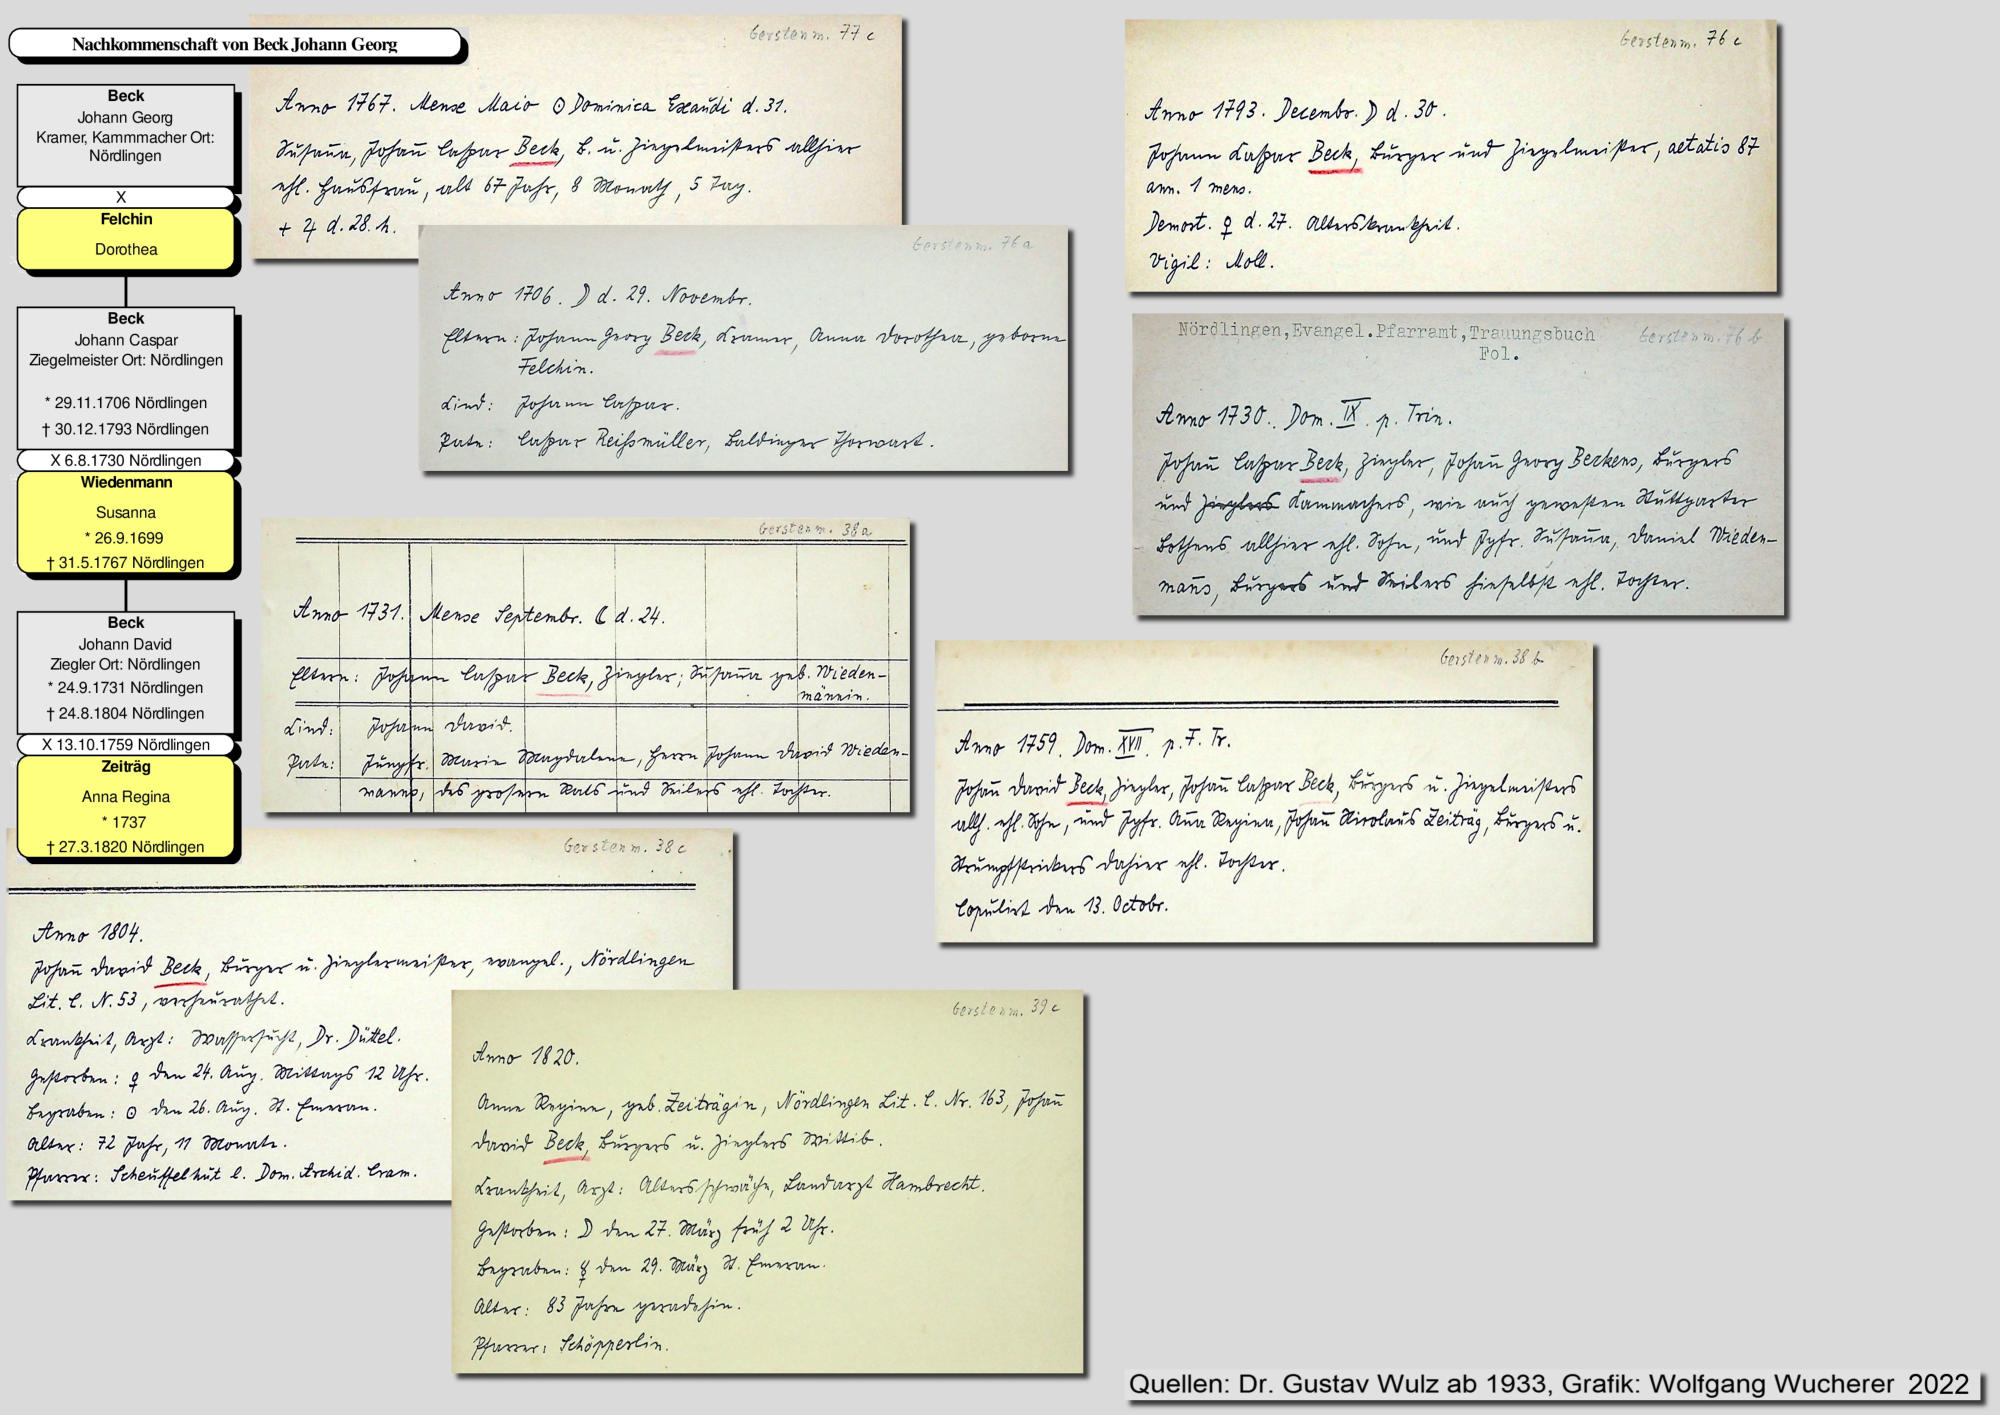 Nachkommenschaft von Beck Johann Georg
Beck
Johann Georg
Kramer, Kammmacher Ort:
Nördlingen
X
Felchin
Dorothea
Beck
Johann Caspar
Ziegelmeister Ort: Nördlingen
* 29.11.1706 Nördlingen
† 30.12.1793 Nördlingen
X 6.8.1730 Nördlingen
Wiedenmann
Susanna
* 26.9.1699
† 31.5.1767 Nördlingen
Beck
Johann David
Ziegler Ort: Nördlingen
* 24.9.1731 Nördlingen
† 24.8.1804 Nördlingen
X 13.10.1759 Nördlingen
Zeiträg
Anna Regina
* 1737
† 27.3.1820 Nördlingen
Gerstenm. 77 c
Anno 1767. Mense Maio ☉ Dominica Exaudi d. 31.
Susan̄a, Johan̄ Caspar Beck, B. u. Ziegelmeisters allhier
ehl. Hausfrau, alt 67 Jahr, 8 Monath, 5 Tag.
+ ♃ d. 28. h.
Gerstenm. 76 a
Anno 1706. ☽ d. 29. Novembr.
Eltern: Johann Georg Beck, Kramer, Anna Dorothea, geborne
Felchin.
Kind: Johann Caspar.
Pate: Caspar Reißmüller, Baldinger Thorwart.
Gerstenm. 38 a
Anno 1731. Mense Septembr. ☾ d. 24.
Eltern: Johann Caspar Beck, Ziegler; Susan̄a geb. Wieden-
män̄in.
Kind: Johann David.
Pate: Jungfr. Maria Magdalena, Herrn Johann David Wieden-
manns, des grosern Rats und Seilers ehl. Tochter.
Gerstenm. 38 c
Anno 1804.
Johan̄ David Beck, Bürger u. Zieglermeister, evangel., Nördlingen
Lit. C. N. 53, verheurathet.
Krankheit, Arzt: Wassersucht, Dr. Düttel.
Gestorben: ♀ den 24. Aug. Mittags 12 Uhr.
Begraben: ☉ den 26. Aug. St. Emeran.
Alter: 72 Jahr, 11 Monate.
Pfarrer: Scheuffelhut l. Dom. Archid. Cram.
Gerstenm. 39 c
Anno 1820.
Anna Regina, geb. Zeiträgin, Nördlingen Lit. C. Nr. 163, Johan̄
David Beck, Bürgers u. Zieglers Wittib.
Krankheit, Arzt: Altersschwäche, Landarzt Hambrecht.
Gestorben: ☽ den 27. März früh 2 Uhr.
Begraben: ☿ den 29. März St. Emeran.
Alter: 83 Jahre geradehin.
Pfarrer: Schöpperlin.
Gerstenm. 76 c
Anno 1793. Decembr. ☽ d. 30.
Johann Kaspar Beck, Bürger und Ziegelmeister, aetatis 87
ann. 1 mens.
Demort. ♀ d. 27. Alterskrankheit.
Vigil: Moll.
Nördlingen, Evangel. Pfarramt, Trauungsbuch Gerstenm. 76 b
Fol.
Anno 1730. Dom. IX. p. Trin.
Johan̄ Caspar Beck, Ziegler, Johan̄ Georg Beckens, Burgers
und Zieglers Kammachers, wie auch gewesten Stuttgarter
Bothens allhier ehl. Sohn, und Jgfr. Susan̄a, Daniel Wieden-
man̄s, Burgers und Seilers hieselbst ehl. Tochter.
Gerstenm. 38 b
Anno 1759. Dom. XVII. p. F. Tr.
Johan̄ David Beck, Ziegler, Johan̄ Caspar Beck, Burgers u. Ziegelmeisters
allh. ehl. Sohn, und Jgfr. An̄a Regina, Johan̄ Nicolaus Zeiträg, Burgers u.
Strumpfstrickers dahier ehl. Tochter.
Copulirt den 13. Octobr.
Quellen: Dr. Gustav Wulz ab 1933, Grafik: Wolfgang Wucherer 2022